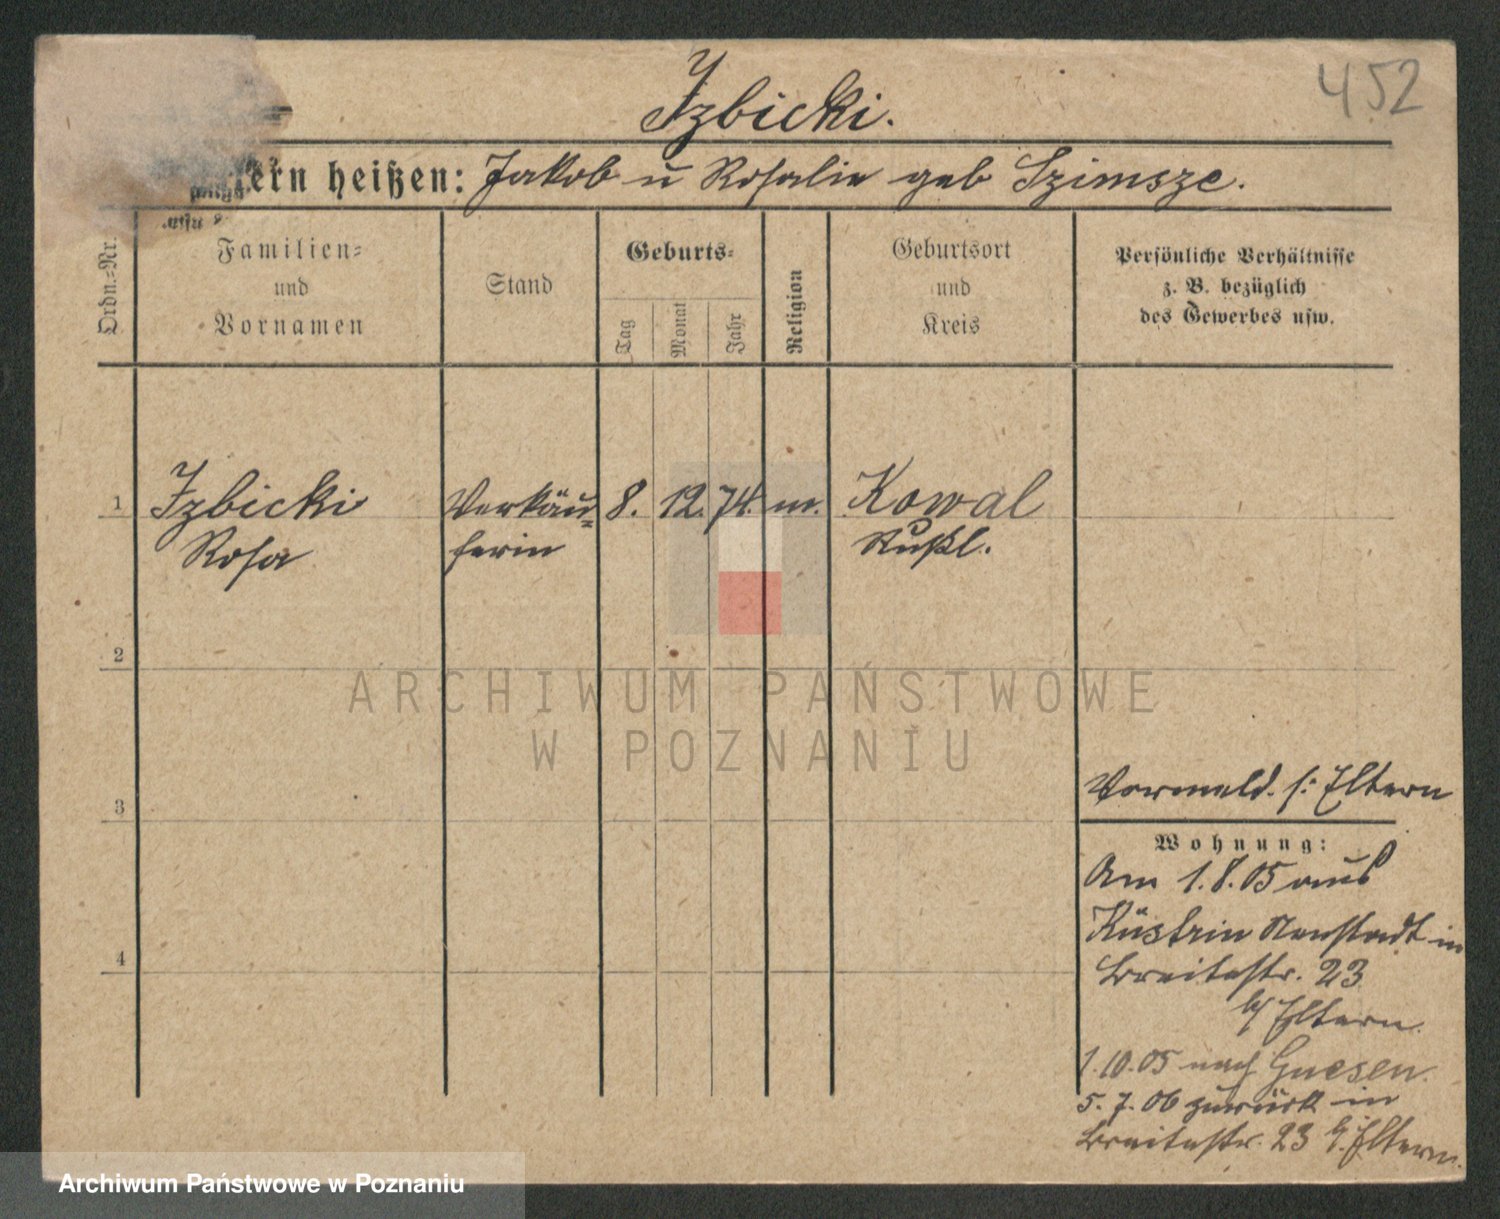 452
Izbicki.
ern heißen: Jakob u Rosalie geb Szimsze.
Ordn.=Nr.
Familien=
und
Vornamen
Stand
Geburts=
Tag
Monat
Jahr
Religion
Geburtsort
und
Kreis
Persönliche Verhältnisse
z. B. bezüglich
des Gewerbes usw.
1 Izbicki Verkäu= 8. 12. 74. m. Kowal
Rosa ferin Rußl.
2
ARCHIWUM PAŃSTWOWE
W POZNANIU
3
4
Vormeld. s: Eltern
Wohnung:
Am 1.8.05 aus
Küstrin Neustadt in
Breitestr. 23
b/ Eltern.
1.10.05 nach Gnesen.
5.7.06 zurück in
Breitestr. 23 b. Eltern.
Archiwum Państwowe w Poznaniu